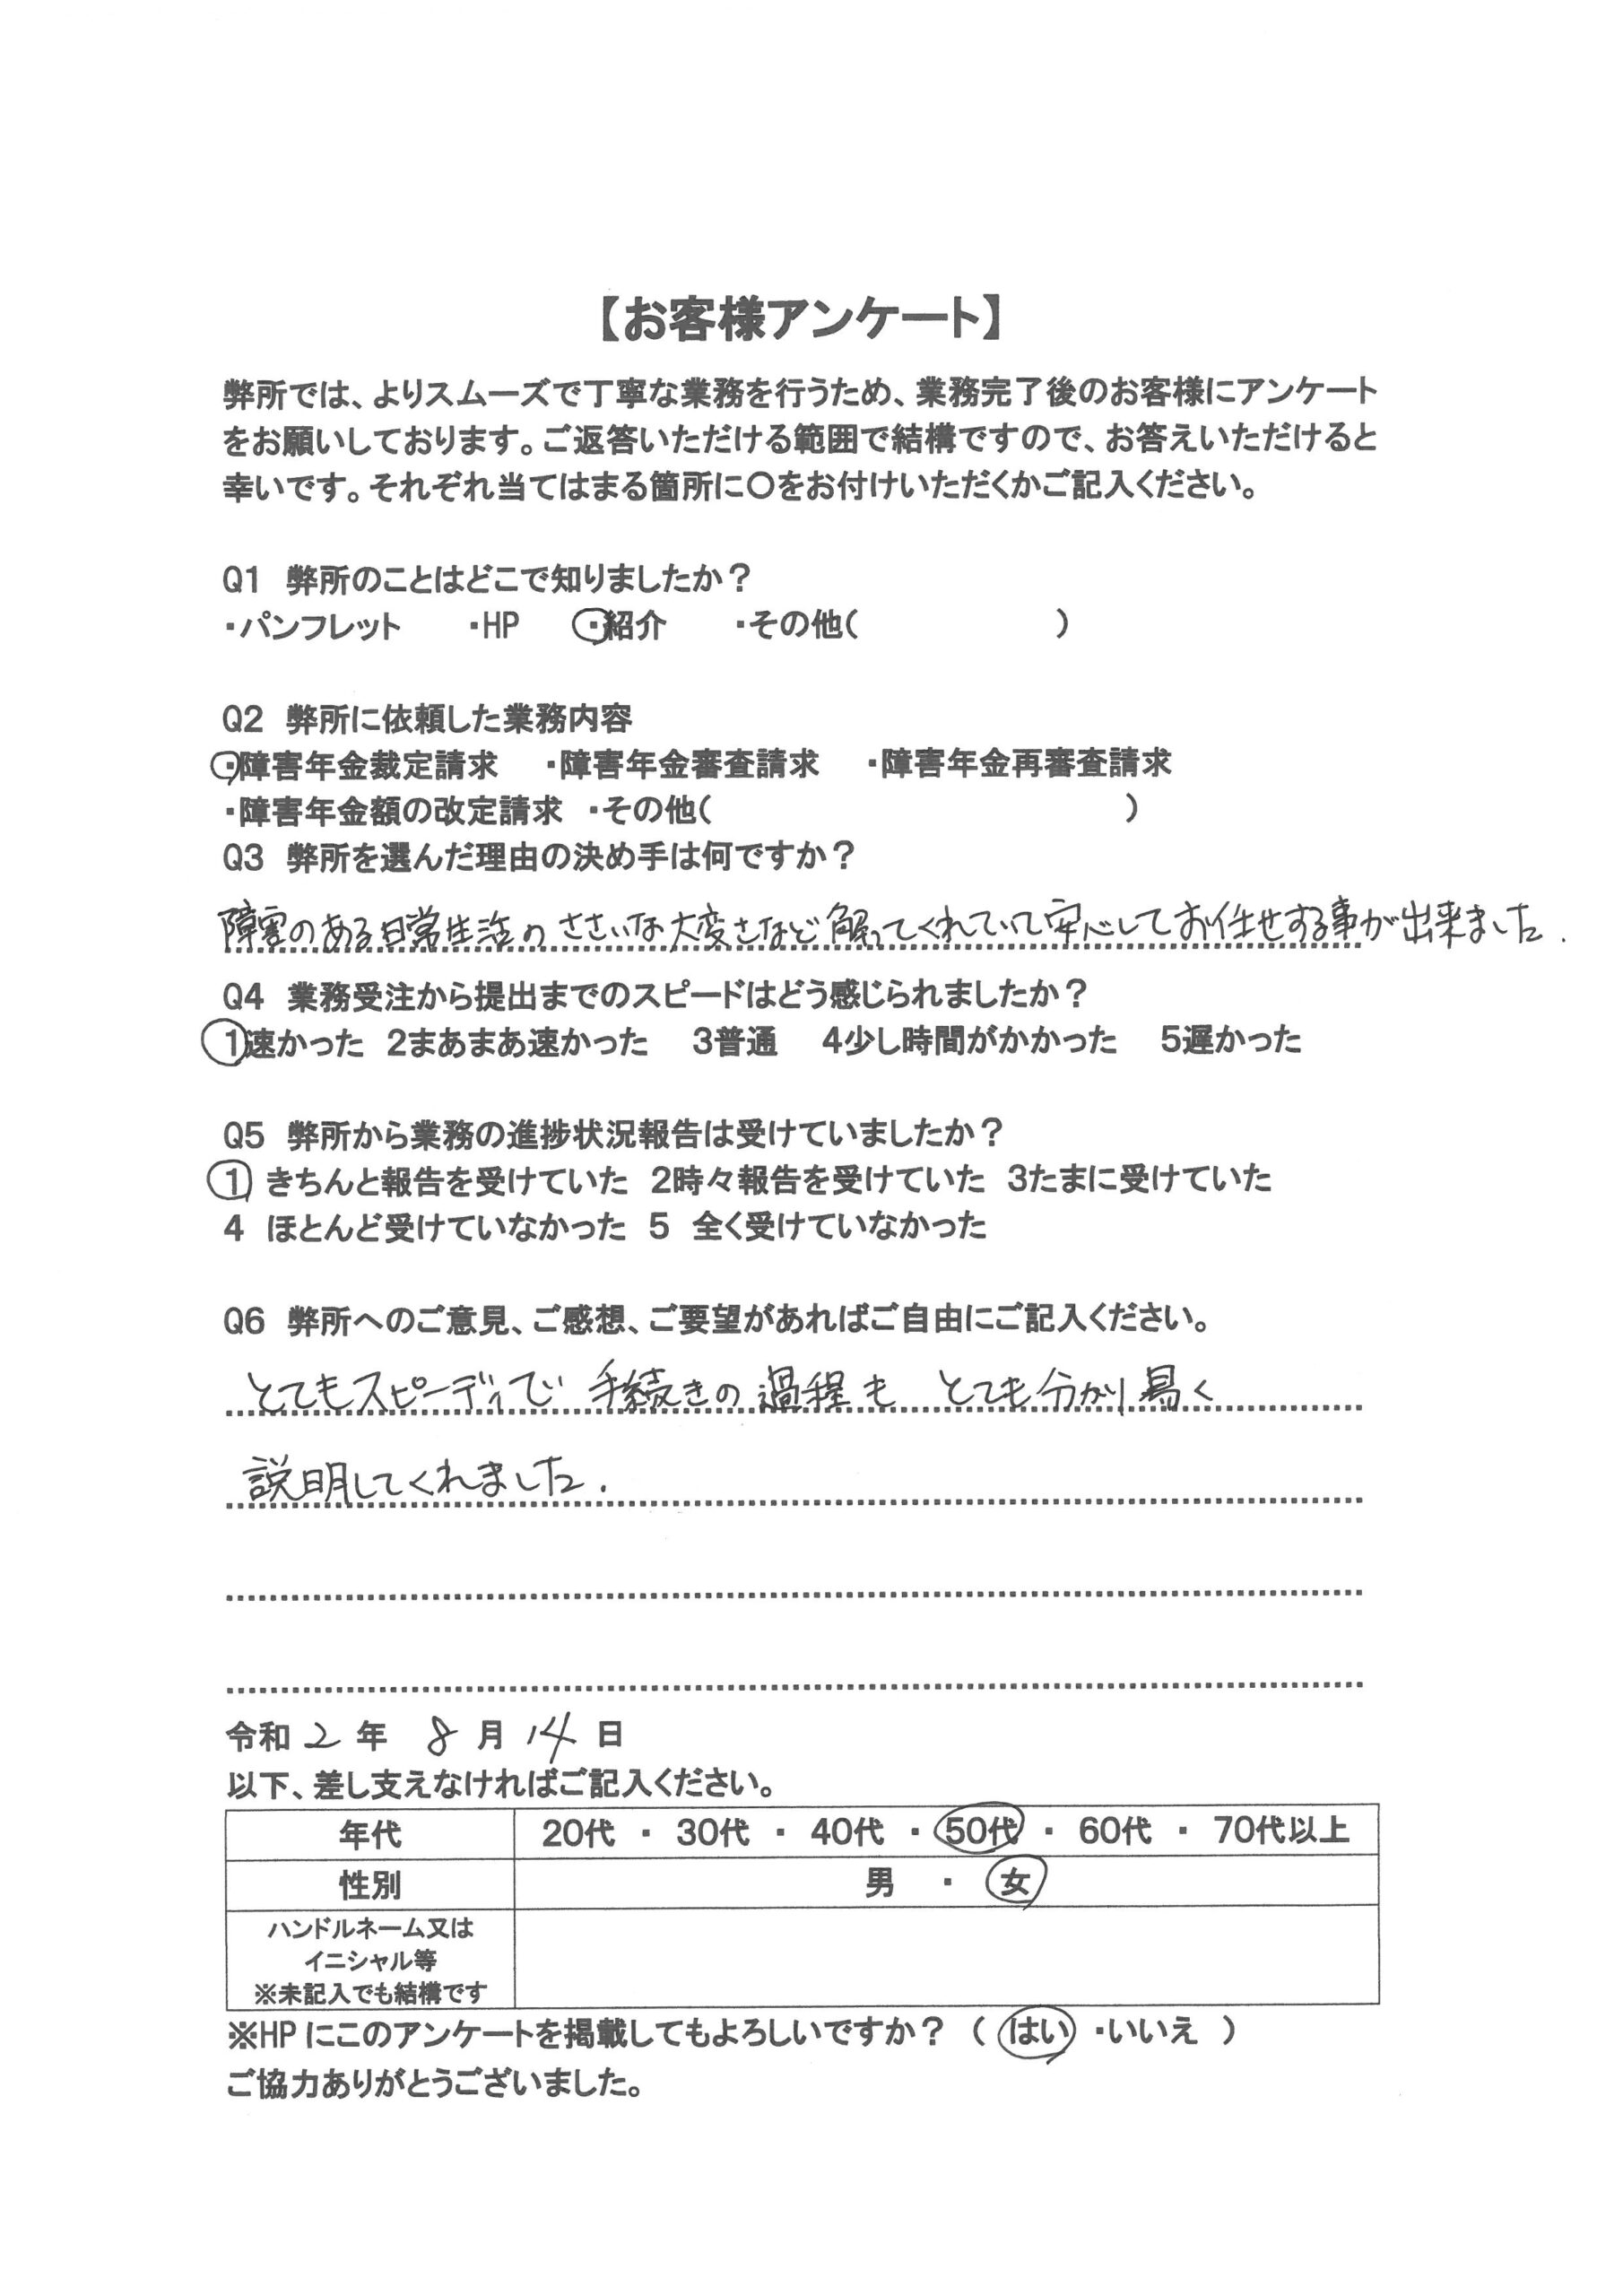 【お客様アンケート】
弊所では、よりスムーズで丁寧な業務を行うため、業務完了後のお客様にアンケート
をお願いしております。ご返答いただける範囲で結構ですので、お答えいただけると
幸いです。それぞれ当てはまる箇所に〇をお付けいただくかご記入ください。
Q1 弊所のことはどこで知りましたか？
・パンフレット ・HP ・紹介 ・その他( )
Q2 弊所に依頼した業務内容
・障害年金裁定請求 ・障害年金審査請求 ・障害年金再審査請求
・障害年金額の改定請求 ・その他( )
Q3 弊所を選んだ理由の決め手は何ですか？
障害のある日常生活のささいな大変さなど解ってくれていて安心してお任せする事が出来ました.
Q4 業務受注から提出までのスピードはどう感じられましたか？
1速かった 2まあまあ速かった 3普通 4少し時間がかかった 5遅かった
Q5 弊所から業務の進捗状況報告は受けていましたか？
1 きちんと報告を受けていた 2時々報告を受けていた 3たまに受けていた
4 ほとんど受けていなかった 5 全く受けていなかった
Q6 弊所へのご意見、ご感想、ご要望があればご自由にご記入ください。
とてもスピーディで 手続きの過程も とても分かり易く
説明してくれました.
令和 2 年 8 月 14 日
以下、差し支えなければご記入ください。
年代 20代 ・ 30代 ・ 40代 ・ 50代 ・ 60代 ・ 70代以上
性別 男 ・ 女
ハンドルネーム又は
イニシャル等
※未記入でも結構です
※HPにこのアンケートを掲載してもよろしいですか？ ( はい ・いいえ )
ご協力ありがとうございました。